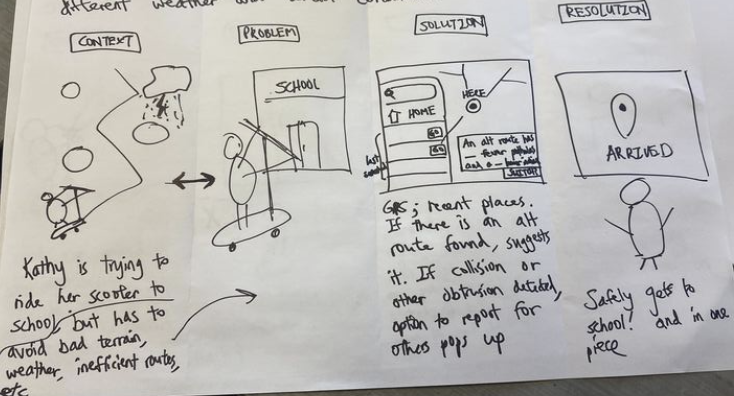 different weather
CONTEXT
PROBLEM
SOLUTION
RESOLUTION
SCHOOL
HOME
GO
GO
last
HERE
An alt route has
fewer potholes
and a
SWITCH
ARRIVED
Kathy is trying to
ride her scooter to
school, but has to
avoid bad terrain,
weather, inefficient routes,
etc
GPS; recent places.
If there is an alt
route found, suggests
it. If collision or
other obtrusion detected,
option to report for
others pops up
Safely gets to
school! and in one
piece